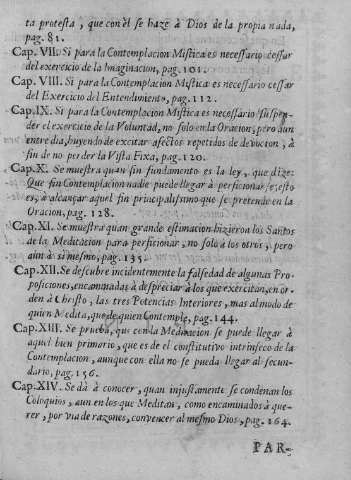 ta protesta, que con èl se haze à Dios de la propia nada,
pag. 81.
Cap. VII. Si para la Contemplacion Mistica es necessario cessar
del exercicio de la Imaginacion, pag. 101.
Cap. VIII. Si para la Contemplacion Mistica es necessario cessar
del Exercicio del Entendimiento, pag. 112.
Cap. IX. Si para la Contemplacion Mistica es necessario suspen-
der el exercicio de la Voluntad, no solo en la Oracion, pero aun
entre dia, huyendo de excitar afectos repetidos de devocion, à
fin de no perder la Vista Fixa, pag. 120.
Cap. X. Se muestra quan sin fundamento es la ley, que dize:
Que sin Contemplacion nadie puede llegar à perficionarse, esto
es, à alcançar aquel fin principalissimo que se pretende en la
Oracion, pag. 128.
Cap. XI. Se muestra quan grande estimacion hizieron los Santos
de la Meditacion para perficionar, no solo à los otros, pero
aun à si mesmo, pag. 135.
Cap. XII. Se descubre incidentemente la falsedad de algunas Pro-
posiciones, encaminadas à despreciar à los que exercitan, en or-
den à Christo, las tres Potencias Interiores, mas al modo de
quien Medita, que de quien Contemple, pag. 144.
Cap. XIII. Se prueba, que con la Meditacion se puede llegar à
aquel bien primario, que es de el constitutivo intrinseco de la
Contemplacion, aunque con ella no se pueda llegar al secun-
dario, pag. 156.
Cap. XIV. Se dà à conocer, quan injustamente se condenan los
Coloquios, aun en los que Meditan, como encaminados à que-
rer, por via de razones, convencer al mesmo Dios, pag. 164.
PAR-